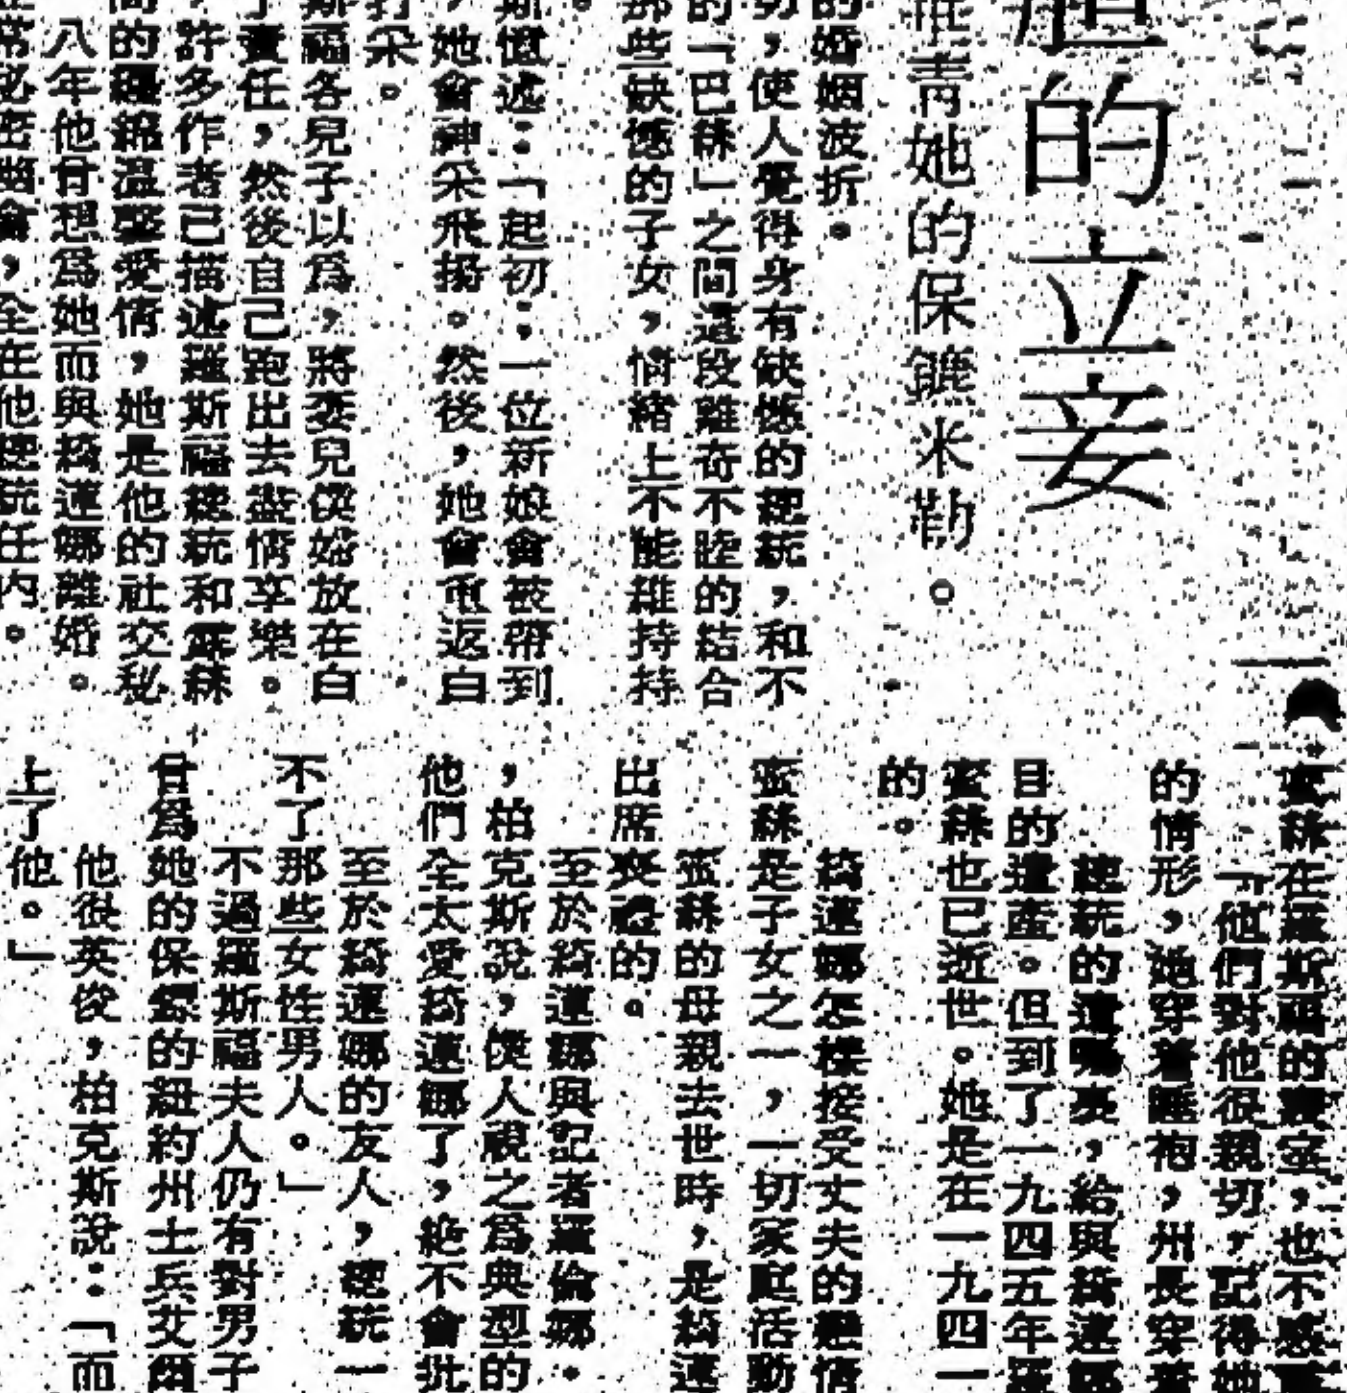 的立妾
青她的保鑣米勒。
的婚姻波折。
,使人覺得身有缺憾的總統,和不
的「巴絲」之間這段離奇不睦的結合
那些缺憾的子女,情緒上不能維持持
斯憶述:「起初,一位新娘會被帶到
,她會神采飛揚。然後,她會重返白
斯福各兒子以為,將妻兒僕婦放在白
了責任,然後自己跑出去盡情享樂。
,許多作者已描述羅斯福總統和露絲
間的纏綿溫馨愛情,她是他的社交秘
八年他曾想為她而與綺蓮娜離婚。
常秘密幽會,全在他總統任內。
蜜絲在羅斯福的寢室,也不感
「他們對他很親切,記得她
的情形,她穿着睡袍,州長穿着
總統的遺囑裏,給與綺蓮娜
目的遺產。但到了一九四五年羅
蜜絲也已逝世。她是在一九四一
的。
綺蓮娜怎樣接受丈夫的戀情
蜜絲是子女之一,一切家庭活動
蜜絲的母親去世時,是綺蓮
出席喪禮的。
至於綺蓮娜與記者羅倫娜.
,柏克斯說,僕人視之為典型的
他們全太愛綺蓮娜了,絕不會批
至於綺蓮娜的友人,總統一
不了那些女性男人。」
不過羅斯福夫人仍有對男子
曾為她的保鑣的紐約州士兵艾爾
他很英俊,柏克斯說:「而
上了他。」